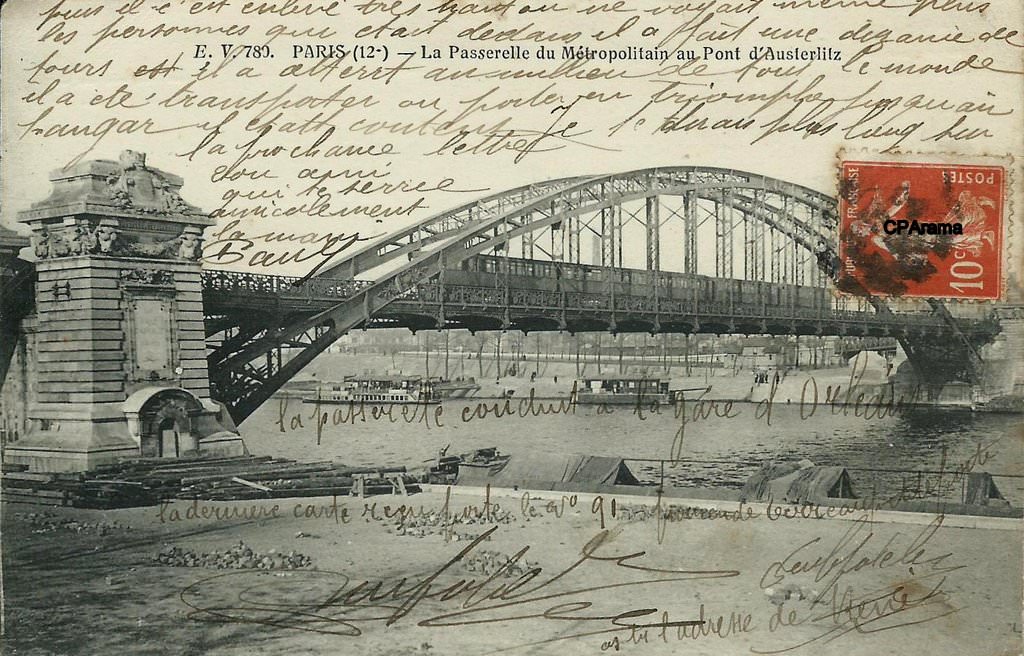 puis il c'est enlevé très haut on ne voyait même plus
les personnes que était dedans il a fait une dizanie de
E. V. 789. PARIS (12e) — La Passerelle du Métropolitain au Pont d'Austerlitz
tours et il a aterrit au milieu de tous le monde
il a été transporter ou porter en triomphe jusqu'au
hangar il était content Je t'e dirais plus long sur
la prochaine lettre
ton ami
qui te serre
amicalement
la main
Paul
POSTES
10c
CPArama
la passerelle conduit à la gare d'Orleans
la derniere carte remporte le no 91
l'adresse de